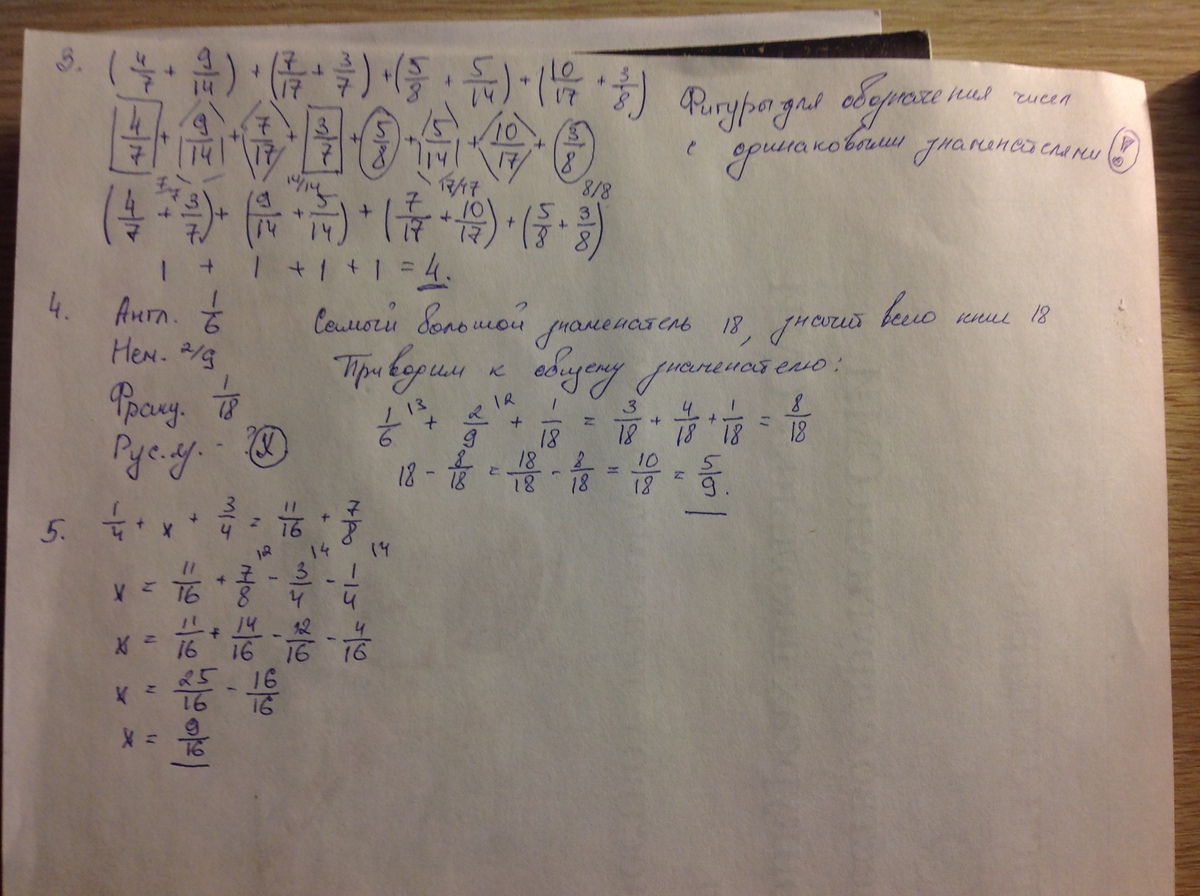 3. (4/7 + 9/14) + (7/17 + 3/7) + (5/8 + 5/14) + (10/17 + 3/8)
Фигуры для обозначения чисел
с одинаковыми знаменателями
4/7 + 9/14 + 7/17 + 3/7 + 5/8 + 5/14 + 10/17 + 3/8
7/7 14/14 17/17 8/8
(4/7 + 3/7) + (9/14 + 5/14) + (7/17 + 10/17) + (5/8 + 3/8)
1 + 1 + 1 + 1 = 4.
4. Англ. 1/6
Нем. 2/9
Франц. 1/18
Рус. яз. - ? X
Самый большой знаменатель 18, значит всего книг 18
Приводим к общему знаменателю:
1/6 \3 + 2/9 \2 + 1/18 = 3/18 + 4/18 + 1/18 = 8/18
18 - 8/18 = 18/18 - 8/18 = 10/18 = 5/9.
5. 1/4 + x + 3/4 = 11/16 + 7/8
x = 11/16 + 7/8 \2 - 3/4 \4 - 1/4 \4
x = 11/16 + 14/16 - 12/16 - 4/16
x = 25/16 - 16/16
x = 9/16